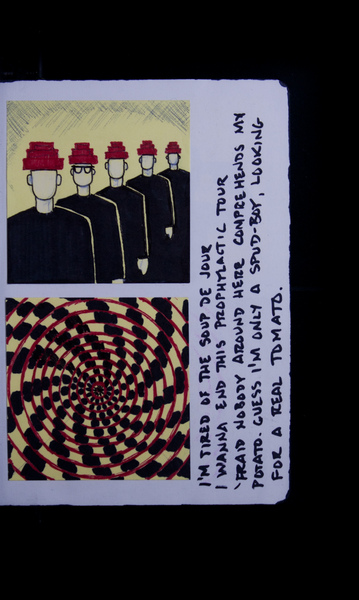 I'M TIRED OF THE SOUP DE JOUR
I WANNA END THIS PROPHYLACTIC TOUR
'FRAID NOBODY AROUND HERE COMPREHENDS MY
POTATO. GUESS I'M ONLY A SPUD-BOY, LOOKING
FOR A REAL TOMATO.